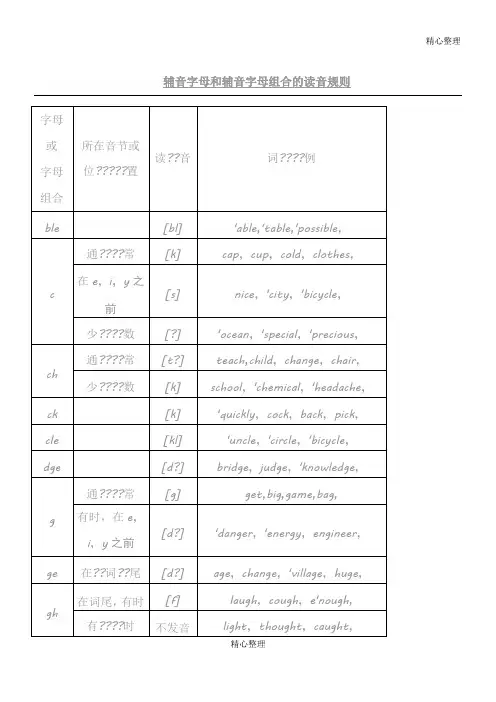 精心整理
辅音字母和辅音字母组合的读音规则
字母
或
字母
组合
所在音节或
位?????置
读??音
词????例
ble [bl] 'able,'table,'possible,
c
通????常 [k] cap, cup, cold, clothes,
在 e, i, y 之
前
[s] nice, 'city, 'bicycle,
少????数 [?] 'ocean, 'special, 'precious,
ch
通????常 [t?] teach,child, change, chair,
少????数 [k] school, 'chemical, 'headache,
ck [k] 'quickly, cock, back, pick,
cle [kl] 'uncle, 'circle, 'bicycle,
dge [d?] bridge, judge, 'knowledge,
g
通????常 [g] get,big,game,bag,
有时, 在 e,
i, y 之前
[d?] 'danger, 'energy, engineer,
ge 在??词??尾 [d?] age, change, 'village, huge,
gh
在词尾, 有时 [f] laugh, cough, e'nough,
有????时 不发音 light, thought, caught,
精心整理